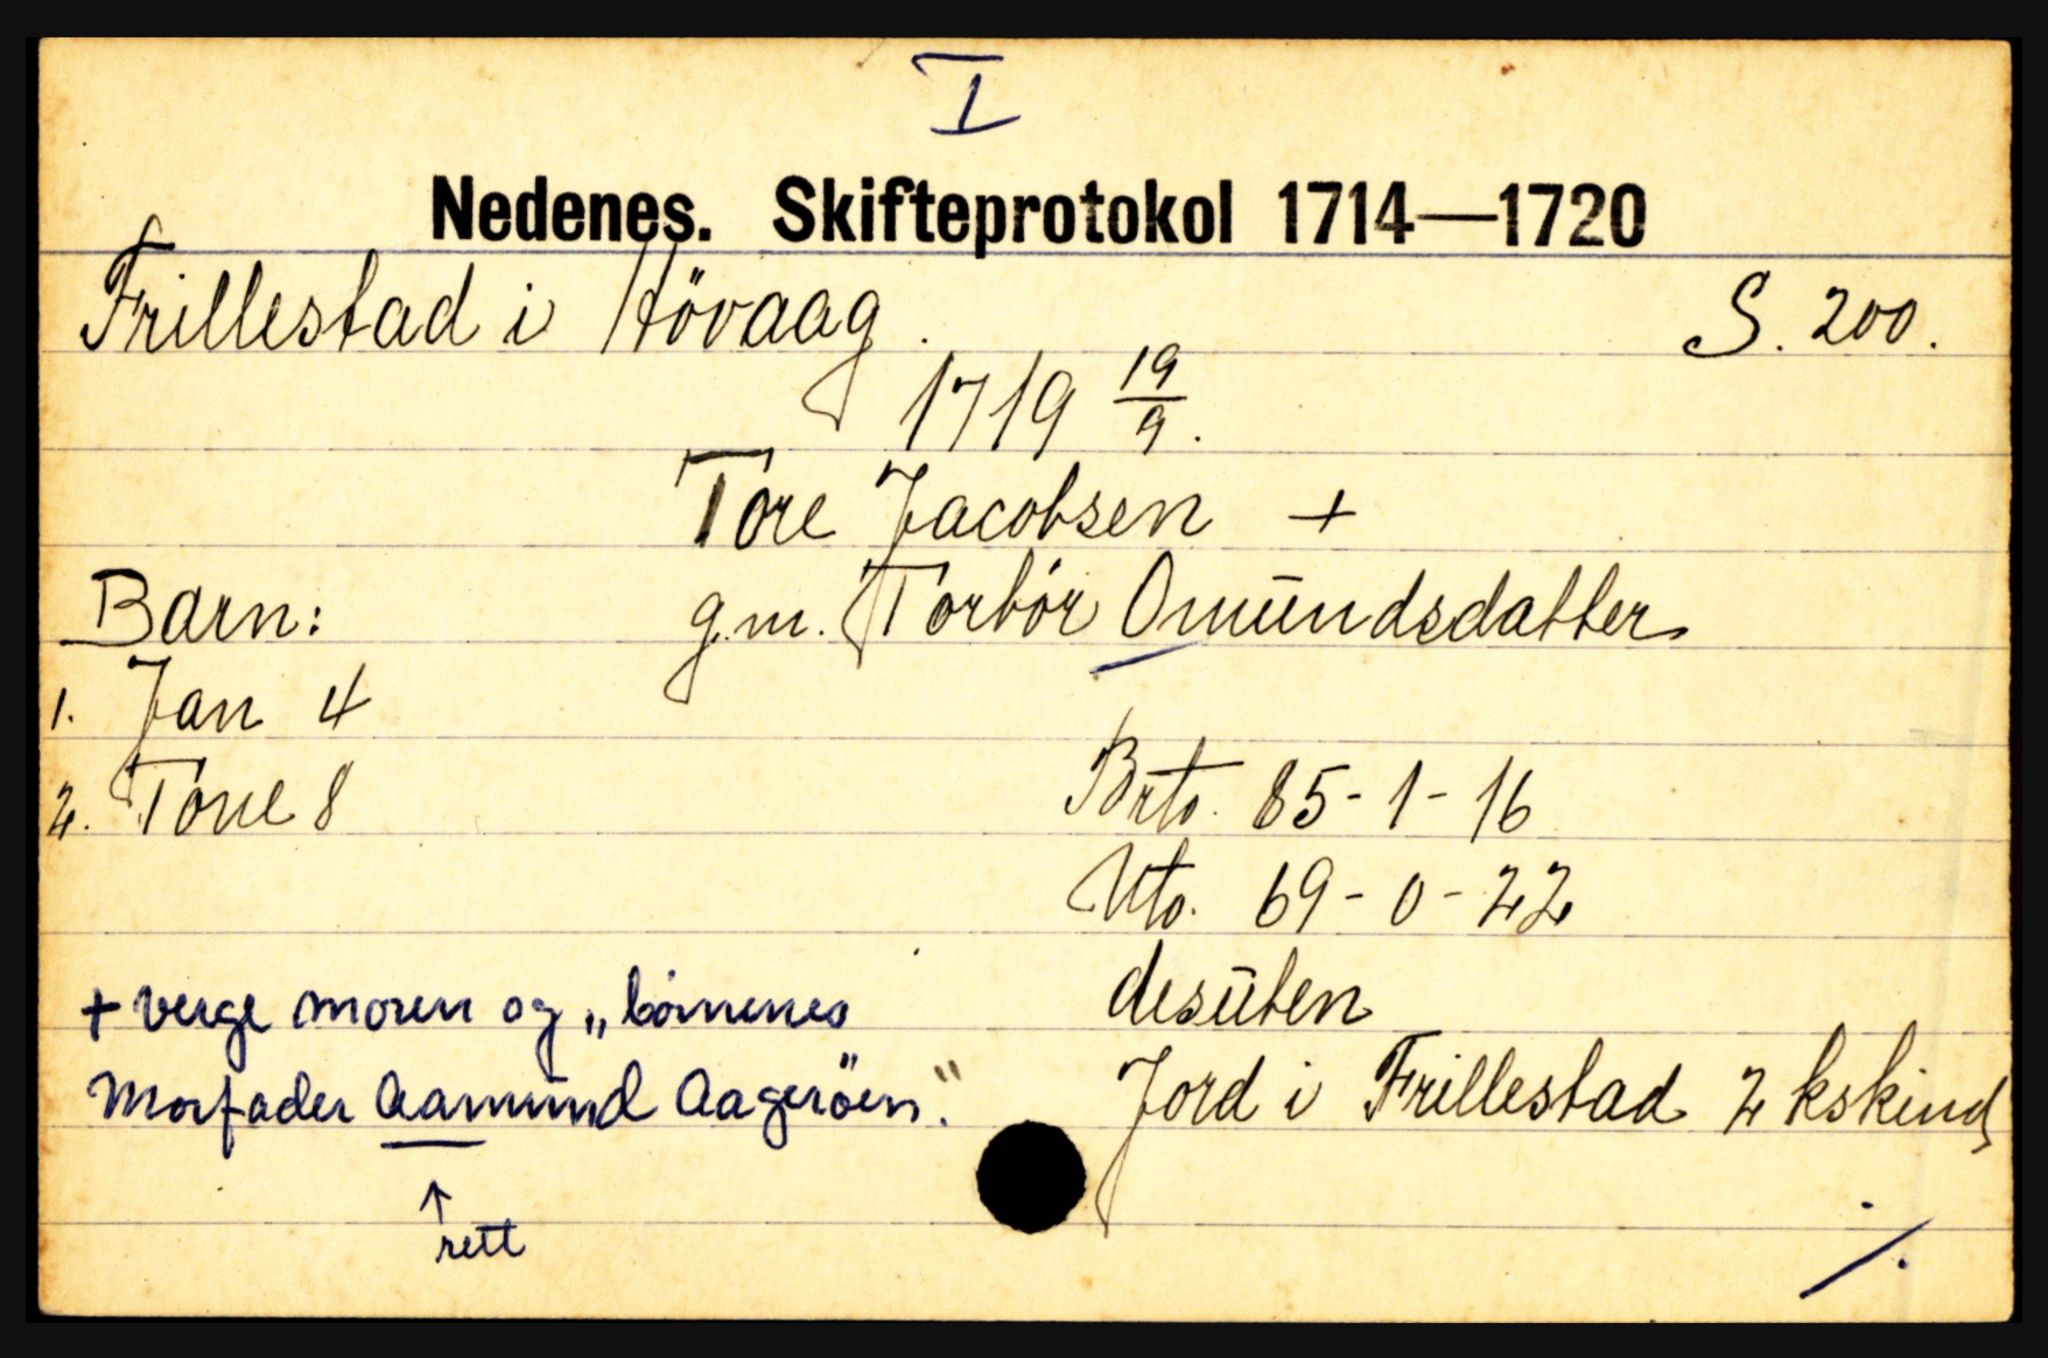 I
Nedenes. Skifteprotokol 1714—1720
Frillestad i Hövaag. S. 200.
1719 19/9.
Tore Jacobsen +
g.m. Torbör Omundsdatter
Barn:
1. Jan 4
2. Tone 8
Brto. 85-1-16
Nto. 69-0-22
desuten
Jord i Frillestad 2 kskind
+ verge moren og „börnenes
Morfader Aamund Aageröen."
↑
rett
./.